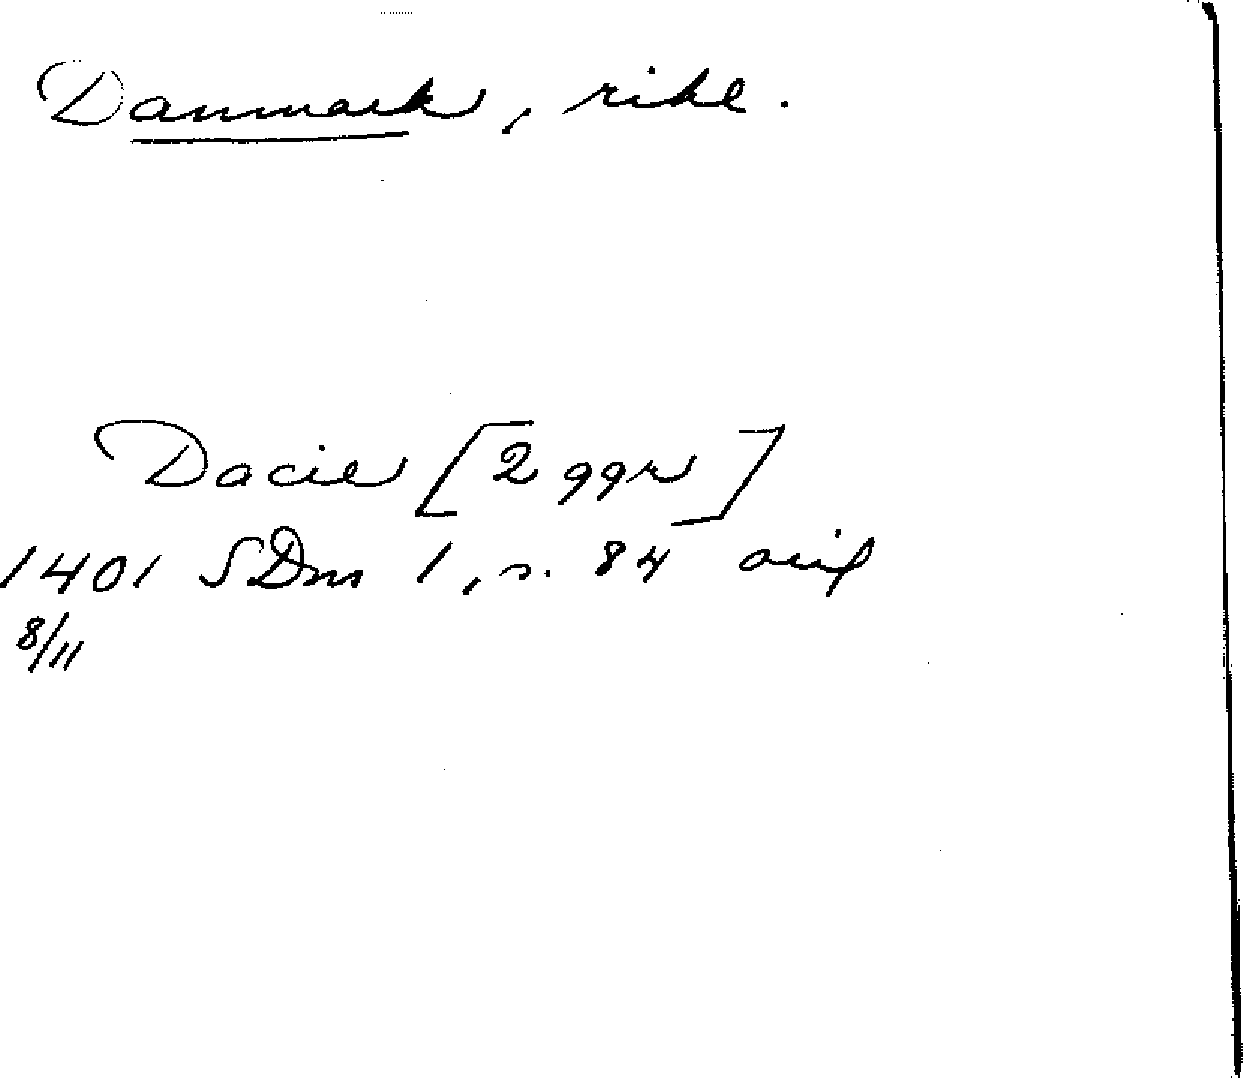 Danmark, rike.
Dacie [2 ggr]
1401 SDns 1, s. 84 orig
8/11